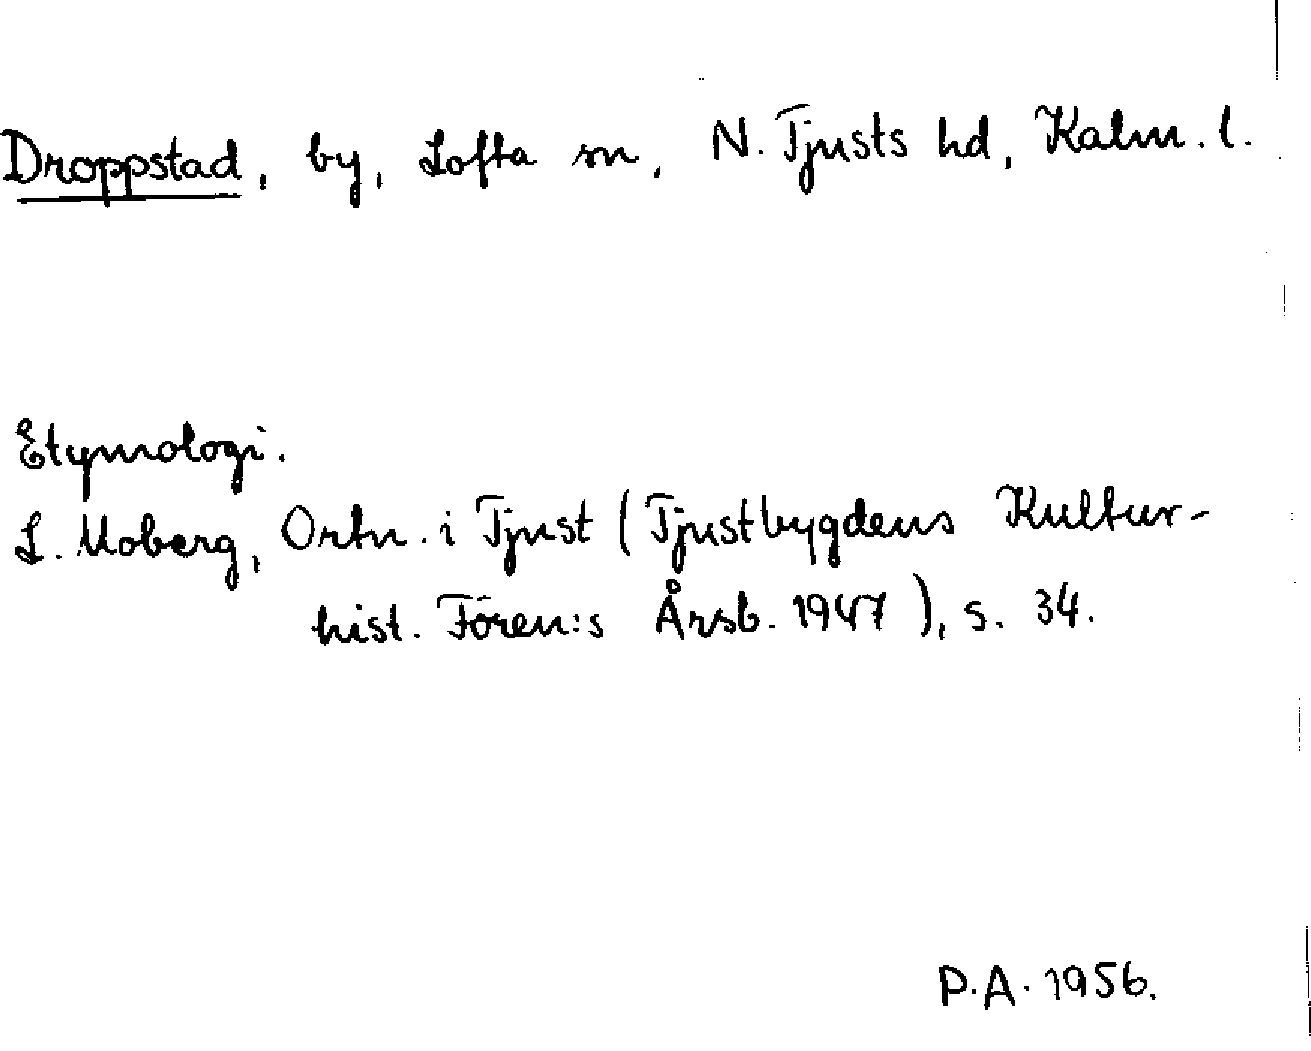 Droppstad, by, Lofta sn, N. Tjusts hd, Kalm. l.
Etymologi.
L. Moberg, Ortn. i Tjust (Tjustbygdens Kultur-
hist. Fören:s Årsb. 1947), s. 34.
P.A. 1956.